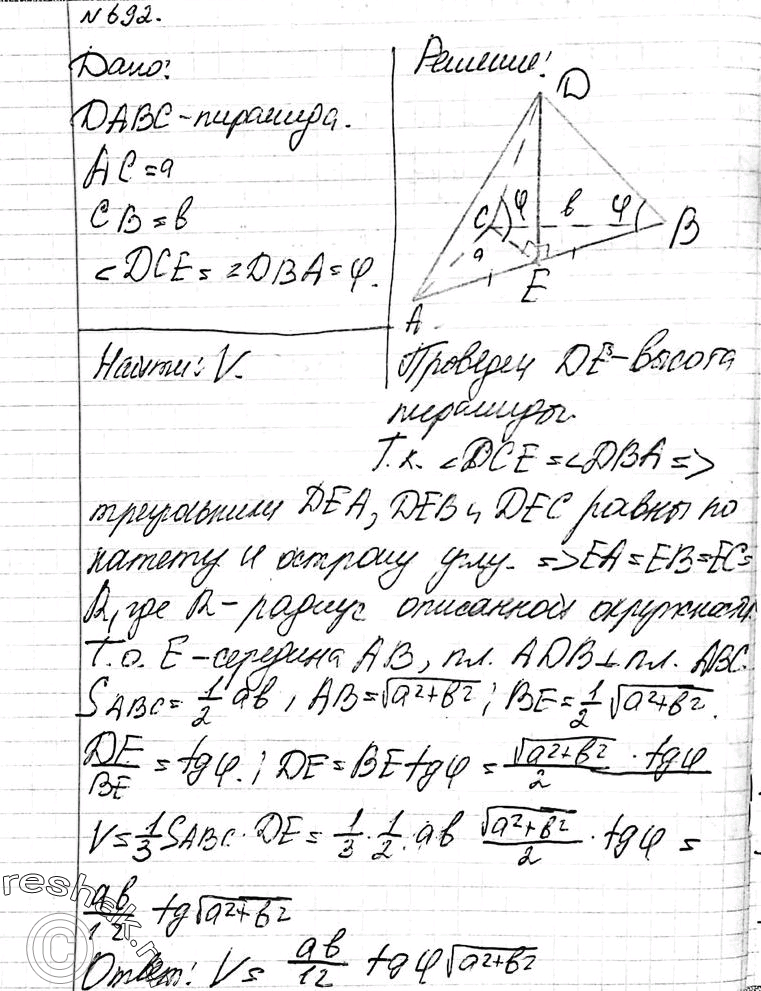 №692.
Дано:
DABC-пирамида.
AC=a
CB=в
<DCE= <DBA=φ.
Найти: V.
Решение:
D
C φ в φ B
a
E
A
Проведем DE-высота
пирамиды.
Т.к. <DCE=<DBA=>
треугольники DEA, DEB и DEC равны по
катету и острому углу. =>EA=EB=EC=
R, где R-радиус описанной окружности.
Т.о. E-середина AB, пл. ADB⊥пл. ABC.
SABC=1/2 aв, AB=√a²+в²; BE=1/2√a²+в².
DE/BE=tgφ.; DE=BEtgφ=√a²+в²/2·tgφ
V=1/3SABC·DE=1/3·1/2·aв √a²+в²/2·tgφ=
aв/12 tg√a²+в²
Ответ: V= aв/12 tgφ√a²+в²
reshak.ru
©